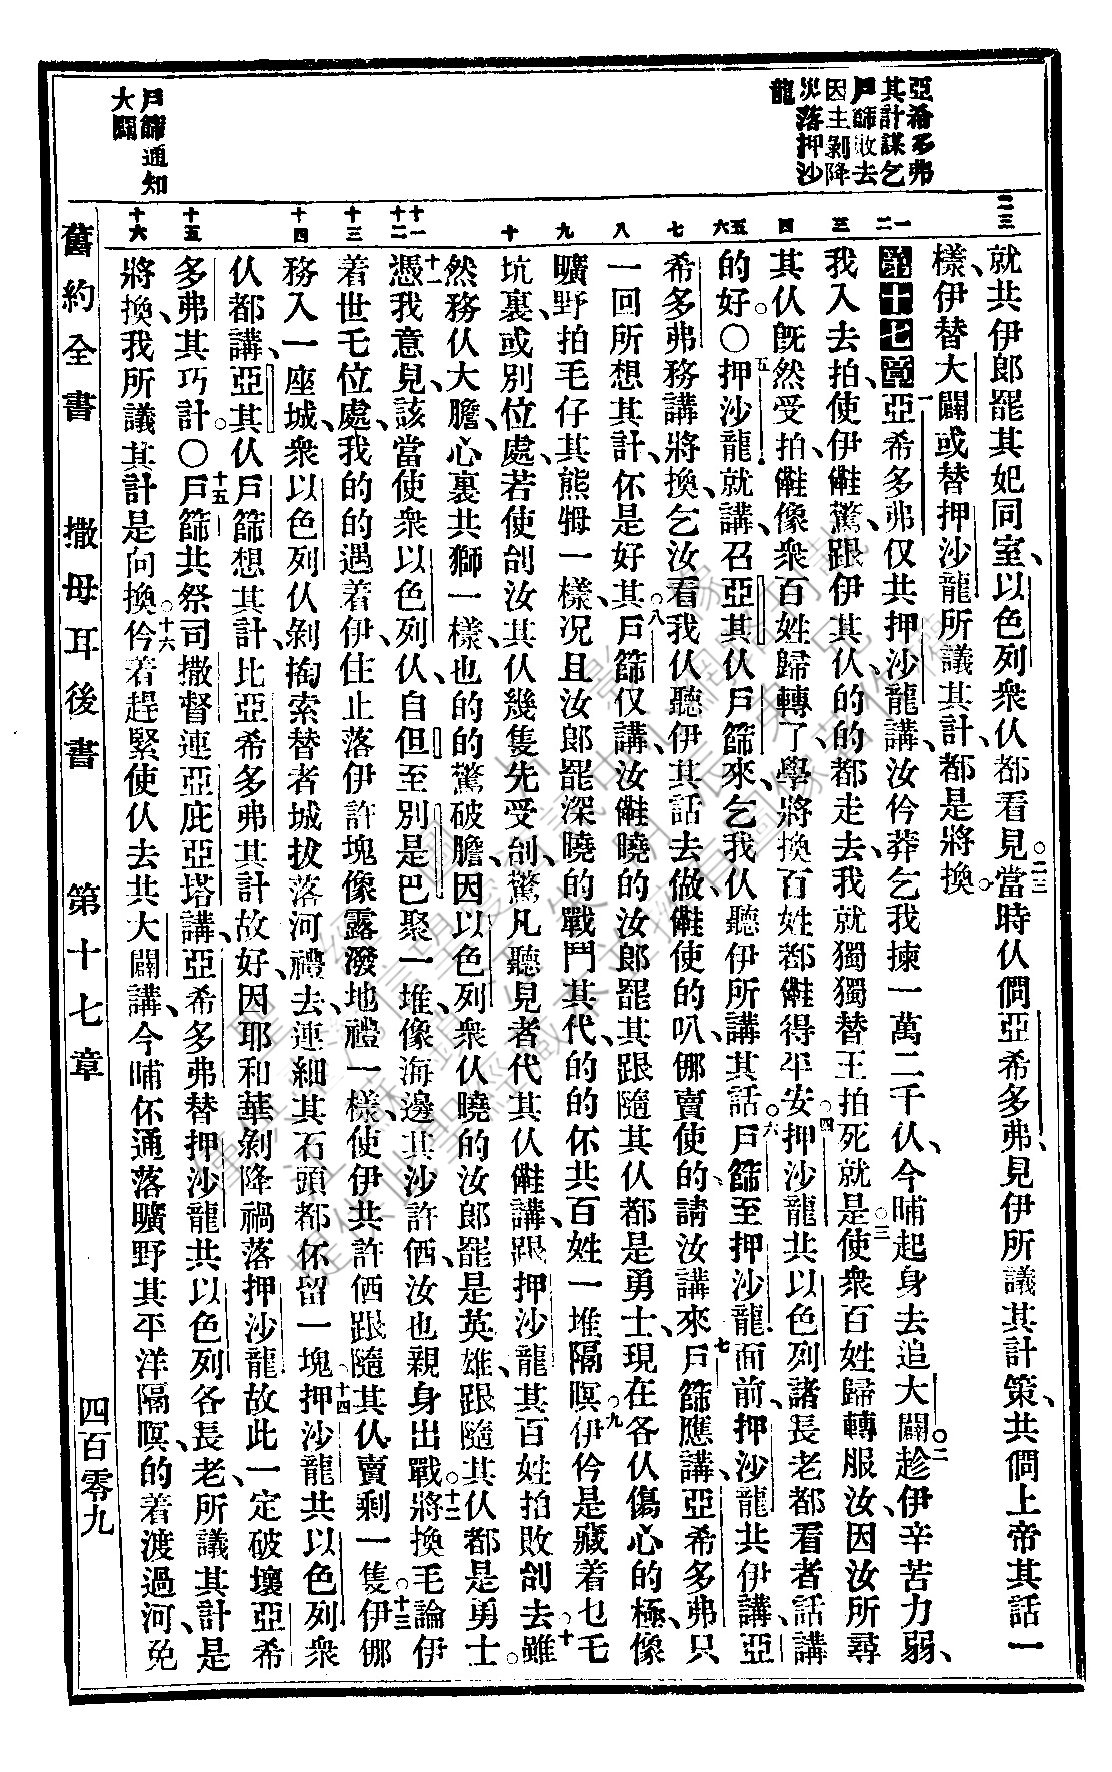 亞希多弗
其計謀乞
戶篩敗去
因主剝降
災落押沙
龍
戶篩通知
大闢
二三
一
二
三
四
五
六
七
八
九
十
十一
十二
十三
十四
十五
十六
就共伊郎罷其妃同室、以色列衆仈都看見。○二三當時仈僩亞希多弗、見伊所議其計策、共僩上帝其話一
樣、伊替大闢或替押沙龍所議其計、都是將換。
第十七章 一亞希多弗仅共押沙龍講、汝仱莽乞我揀一萬二千仈、今晡起身去追大闢。○二趁伊辛苦力弱、
我入去拍、使伊𣍐驚、跟伊其仈的的都走去、我就獨獨替王拍死、就是。○三使衆百姓歸轉服汝、因汝所尋
其仈旣然受拍、𣍐像衆百姓歸轉了、學將換百姓都𣍐得平安。○四押沙龍共以色列諸長老都看者話講
的好。○五押沙龍就講、召亞其仈戶篩來、乞我仈聽伊所講其話。○六戶篩至押沙龍面前、押沙龍共伊講、亞
希多弗務講將換、乞汝看我仈聽伊其話去做、𣍐使的叭、㑚賣使的、請汝講來。七戶篩應講、亞希多弗只
一回所想其計、伓是好其。○八戶篩仅講、汝𣍐曉的汝郎罷其跟隨其仈都是勇士、現在各仈傷心的極、像
曠野拍毛仔其熊㛇一樣、況且汝郎罷深曉的戰鬥其代、的的伓共百姓一堆隔暝。○九伊仱是藏着乜毛
坑裏、或別位處、若使創汝其仈幾隻先受創、驚凡聽見者代其仈𣍐講、跟押沙龍其百姓拍敗創去。○十雖
然務仈大膽、心裏共獅一樣、也的的驚破膽、因以色列衆仈曉的汝郎罷是英雄、跟隨其仈都是勇士。
十一憑我意見、該當使衆以色列仈、自但至別是巴聚一堆、像海邊其沙許価、汝也親身出戰。○十二將換毛論伊
着世乇位處、我的的遇着伊、住止落伊許塊、像露潑地禮一樣、使伊共許価跟隨其仈、賣剩一隻。○十三伊㑚
務入一座城、衆以色列仈剝掏索替者城拔落河禮去、連細其石頭都伓留一塊。十四押沙龍共以色列衆
仈都講、亞其仈戶篩想其計、比亞希多弗其計故好、因耶和華剝降禍落押沙龍、故此一定破壞亞希
多弗其巧計。○十五戶篩共祭司撒督連亞庇亞塔講、亞希多弗替押沙龍共以色列各長老、所議其計是
將換、我所議其計是向換。○十六仱着趕緊使仈去共大闢講、今晡伓通落曠野其平洋隔暝、的着渡過河、免
舊約全書 撒母耳後書 第十七章 四百零九